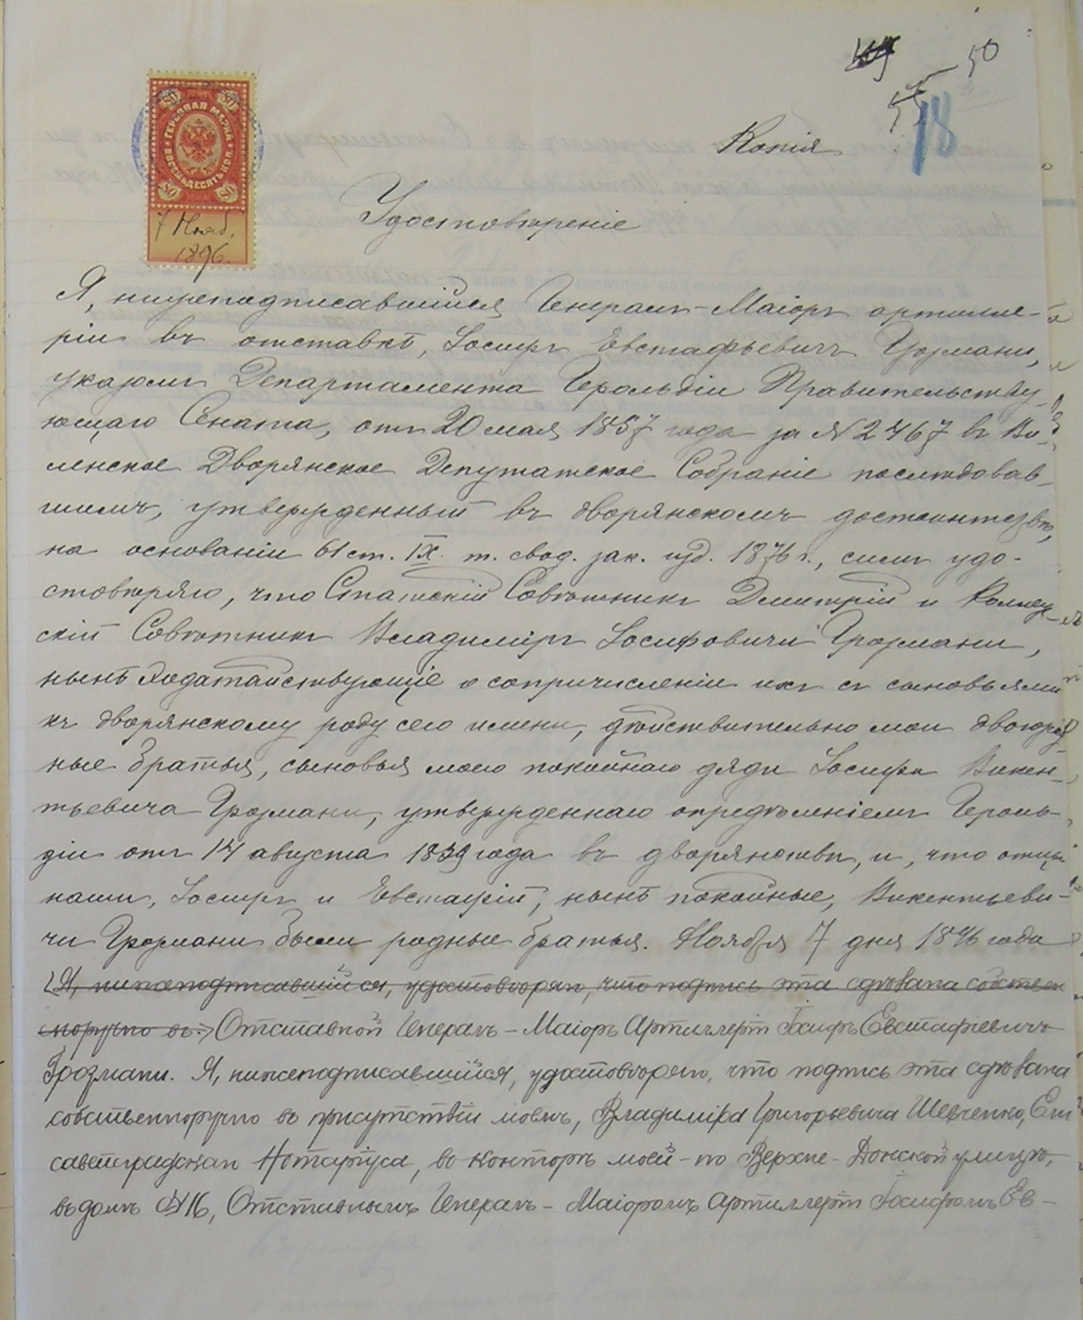 50
55
18
Копія
80 80
ГЕРБОВАЯ МАРКА
ВОСЕМЬДЕСЯТЪ КОП.
80 80
7 Нояб.
1896.
Удостовѣреніе
Я, нижеподписавшійся Генералъ-Маіоръ артилле-
ріи въ отставкѣ, Іосифъ Евстафьевичъ Грозмани,
указомъ Департамента Герольдіи Правительству-
ющаго Сената, отъ 20 мая 1857 года за N 2467 въ Ви-
ленское Дворянское Депутатское Собраніе послѣдовав-
шимъ, утвержденный въ дворянскомъ достоинствѣ,
на основаніи 61 ст. IX. т. свод. зак. изд. 1876 г., симъ удо-
стовѣряю, что Статскій Совѣтникъ Дмитрій и Коллеж-
скій Совѣтникъ Владиміръ Іосифовичи Грозмани,
нынѣ ходатайствующіе о сопричисленіи ихъ съ сыновьями
къ дворянскому роду сего имени, дѣйствительно мои двоюрод-
ные братья, сыновья моего покойнаго дяди Іосифа Викен-
тьевича Грозмани, утвержденнаго опредѣленіемъ Героль-
діи отъ 14 августа 1839 года въ дворянствѣ, и, что отцы
наши, Іосифъ и Евстафій, нынѣ покойные, Викентьеви-
чи Грозмани были родные братья. Ноября 7 дня 1896 года
(Я, нижеподписавшійся, удостовѣряю, что подпись эта сдѣлана собствен
норучно въ:) Отставной Генералъ-Маіоръ Артиллеріи Іосифъ Евстафіевичъ
Грозмани. Я, нижеподписавшійся, удостовѣряю, что подпись эта сдѣлана
собственноручно въ присутствіи моемъ, Владиміра Григорьевича Шевченко, Ели
саветградскаго Нотаріуса, въ конторѣ моей-по Верхне-Донской улицѣ,
въ домѣ № 16, Отставнымъ Генералъ-Маіоромъ Артиллеріи Іосифомъ Ев-